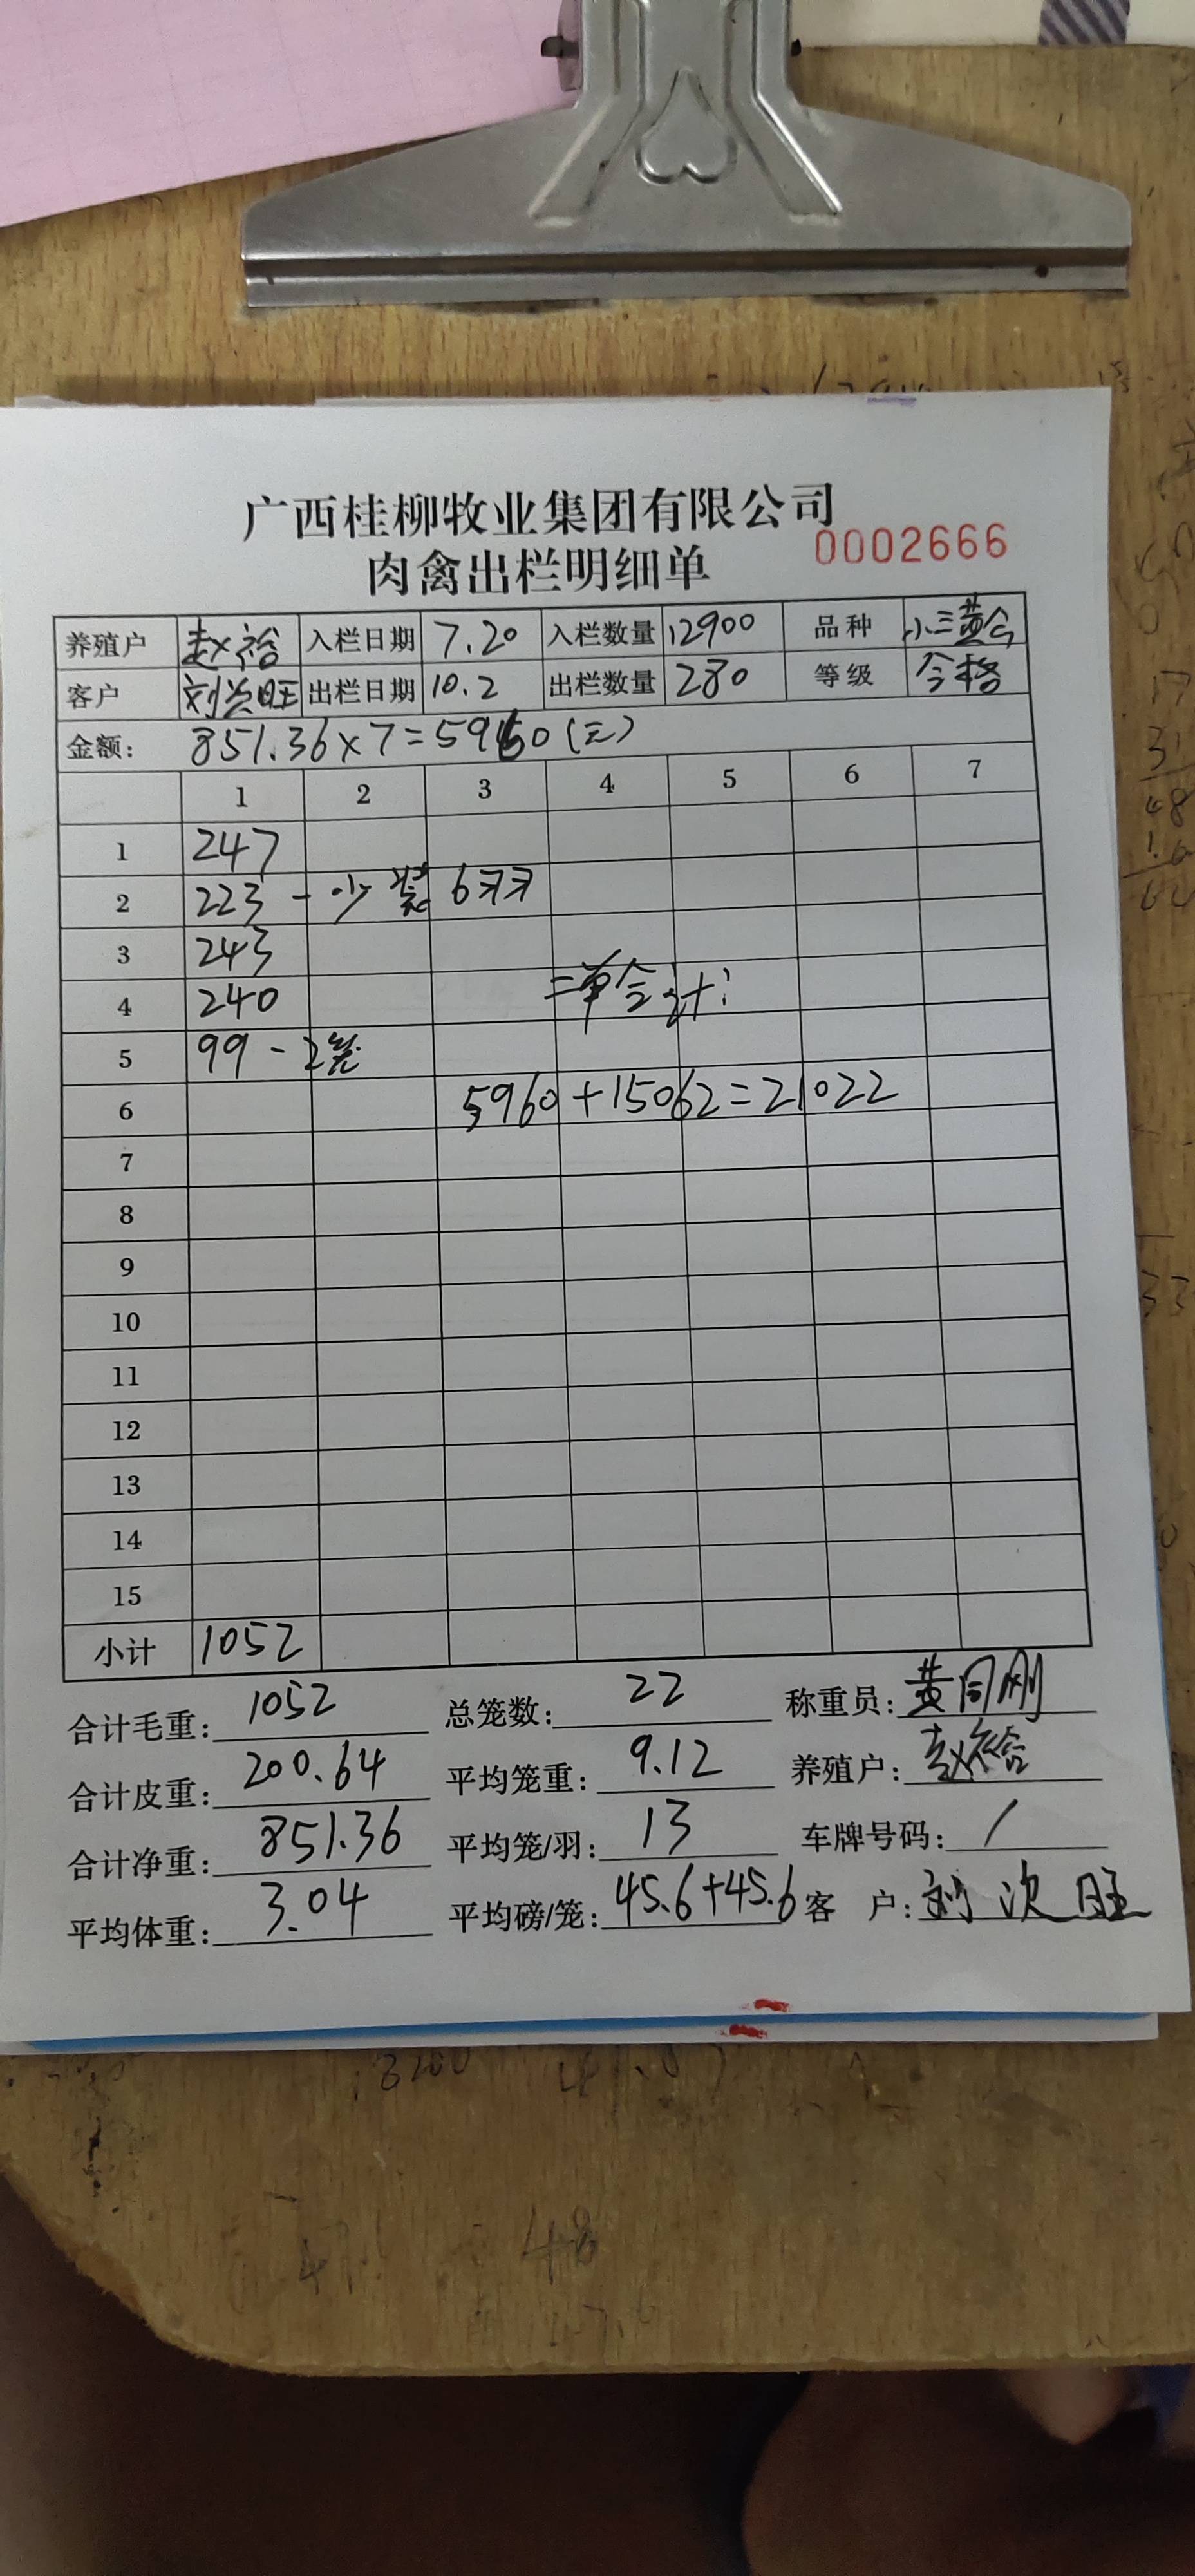 广西桂柳牧业集团有限公司
肉禽出栏明细单 0002666
养殖户 赵裕 入栏日期 7.20 入栏数量 12900 品种 小三黄
客户 刘 旺 出栏日期 10.2 出栏数量 280 等级 合格
金额: 851.36×7=5960(元)
1 2 3 4 5 6 7
1 247
2 223 - 少装6只
3 243
4 240 二单合计:
5 99 - 2笼
6 5960+15062=21022
7
8
9
10
11
12
13
14
15
小计 1052
合计毛重: 1052 总笼数: 22 称重员: 黄 刚
合计皮重: 200.64 平均笼重: 9.12 养殖户: 赵裕
合计净重: 851.36 平均笼/羽: 13 车牌号码: /
平均体重: 3.04 平均磅/笼: 45.6+45.6 客 户: 刘 旺